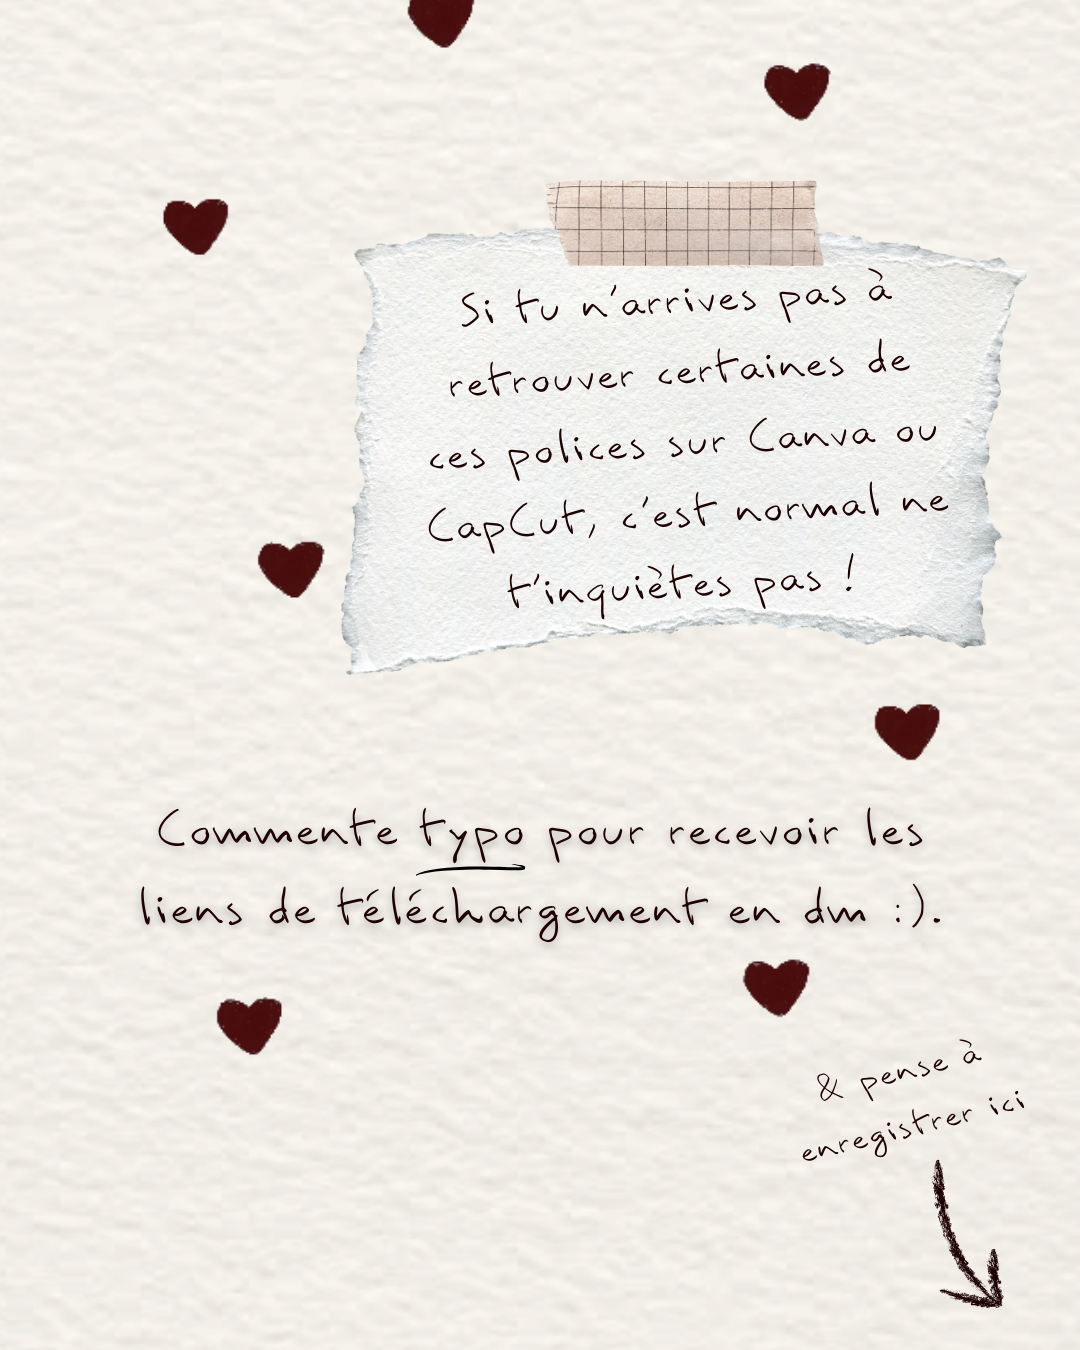 Si tu n'arrives pas à
retrouver certaines de
ces polices sur Canva ou
CapCut, c'est normal ne
t'inquiètes pas !
Commente typo pour recevoir les
liens de téléchargement en dm :).
& pense à
enregistrer ici